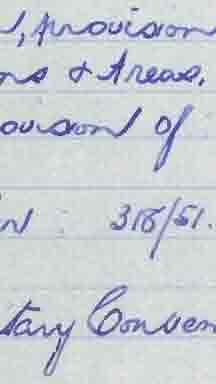 , provision
ns & Areas.
ovision of
: 318/51.
tary Conven